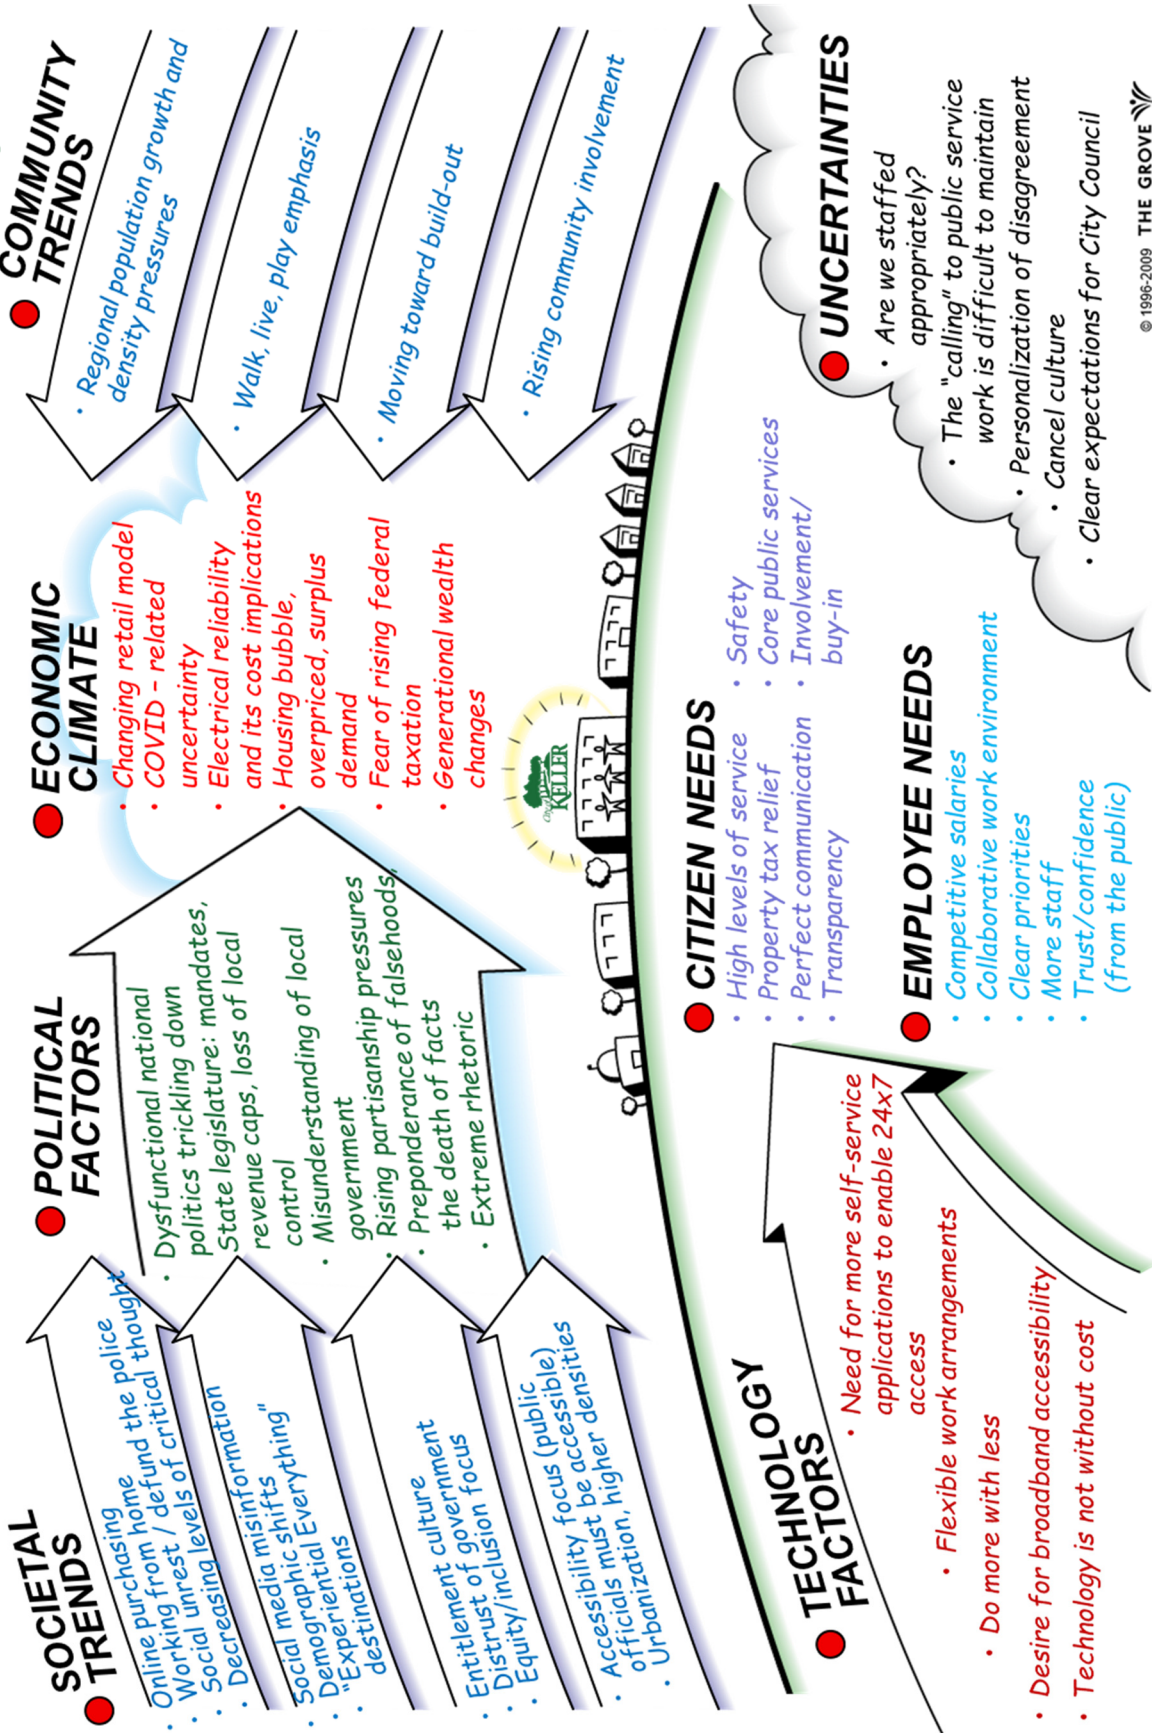 SOCIETAL
TRENDS
• Online purchasing
• Working from home
• Social unrest / defund the police
• Decreasing levels of critical thought
• Social media misinformation
• Demographic shifts
• "Experiential Everything"
destinations
• Entitlement culture
• Distrust of government
• Equity/inclusion focus
• Accessibility focus (public
officials must be accessible)
• Urbanization, higher densities
POLITICAL
FACTORS
• Dysfunctional national
politics trickling down
• State legislature: mandates,
revenue caps, loss of local
control
• Misunderstanding of local
government
• Rising partisanship pressures
• Preponderance of falsehoods,
the death of facts
• Extreme rhetoric
ECONOMIC
CLIMATE
• Changing retail model
• COVID - related
uncertainty
• Electrical reliability
and its cost implications
• Housing bubble,
overpriced, surplus
demand
• Fear of rising federal
taxation
• Generational wealth
changes
COMMUNITY
TRENDS
• Regional population growth and
density pressures
• Walk, live, play emphasis
• Moving toward build-out
• Rising community involvement
City of
KELLER
TECHNOLOGY
FACTORS
• Need for more self-service
applications to enable 24x7
access
• Flexible work arrangements
• Do more with less
• Desire for broadband accessibility
• Technology is not without cost
CITIZEN NEEDS
• High levels of service
• Property tax relief
• Perfect communication
• Transparency
• Safety
• Core public services
• Involvement/
buy-in
EMPLOYEE NEEDS
• Competitive salaries
• Collaborative work environment
• Clear priorities
• More staff
• Trust/confidence
(from the public)
UNCERTAINTIES
• Are we staffed
appropriately?
• The "calling" to public service
work is difficult to maintain
• Personalization of disagreement
• Cancel culture
• Clear expectations for City Council
© 1996-2009 THE GROVE